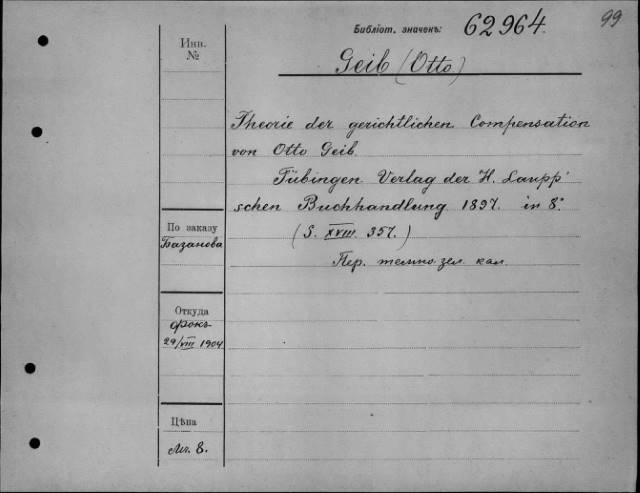 Библіот. значекъ: 62964. 99
Geib (Otto)
Инв.
№
Theorie der gerichtlichen Compensation
von Otto Geib.
Tübingen Verlag der H. Laupp'
schen Buchhandlung 1897. in 8°
(S. XVIII. 357.)
Пер. темно. зел. кал.
По заказу
Базанова
Откуда
Фокъ
29/VIII 1904
Цѣна
Мг. 8.